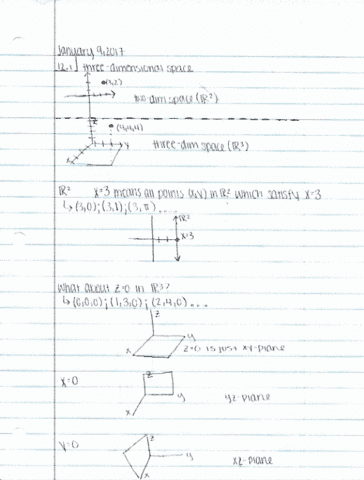 January 9, 2017
12.1 three-dimensional space
(3,2)
two dim space (ℝ²)
z
(4,4,4)
y
x
three-dim space (ℝ³)
ℝ² x=3 means all points (x,y) in ℝ² which satisfy x=3
↳ (3,0); (3,1); (3,π)...
ℝ²
x=3
What about z=0 in ℝ³?
↳ (0,0,0); (1,3,0); (2,4,0)...
z
y
x
z=0 is just xy-plane
x=0
z
y
x
yz-plane
y=0
z
y
x
xz-plane